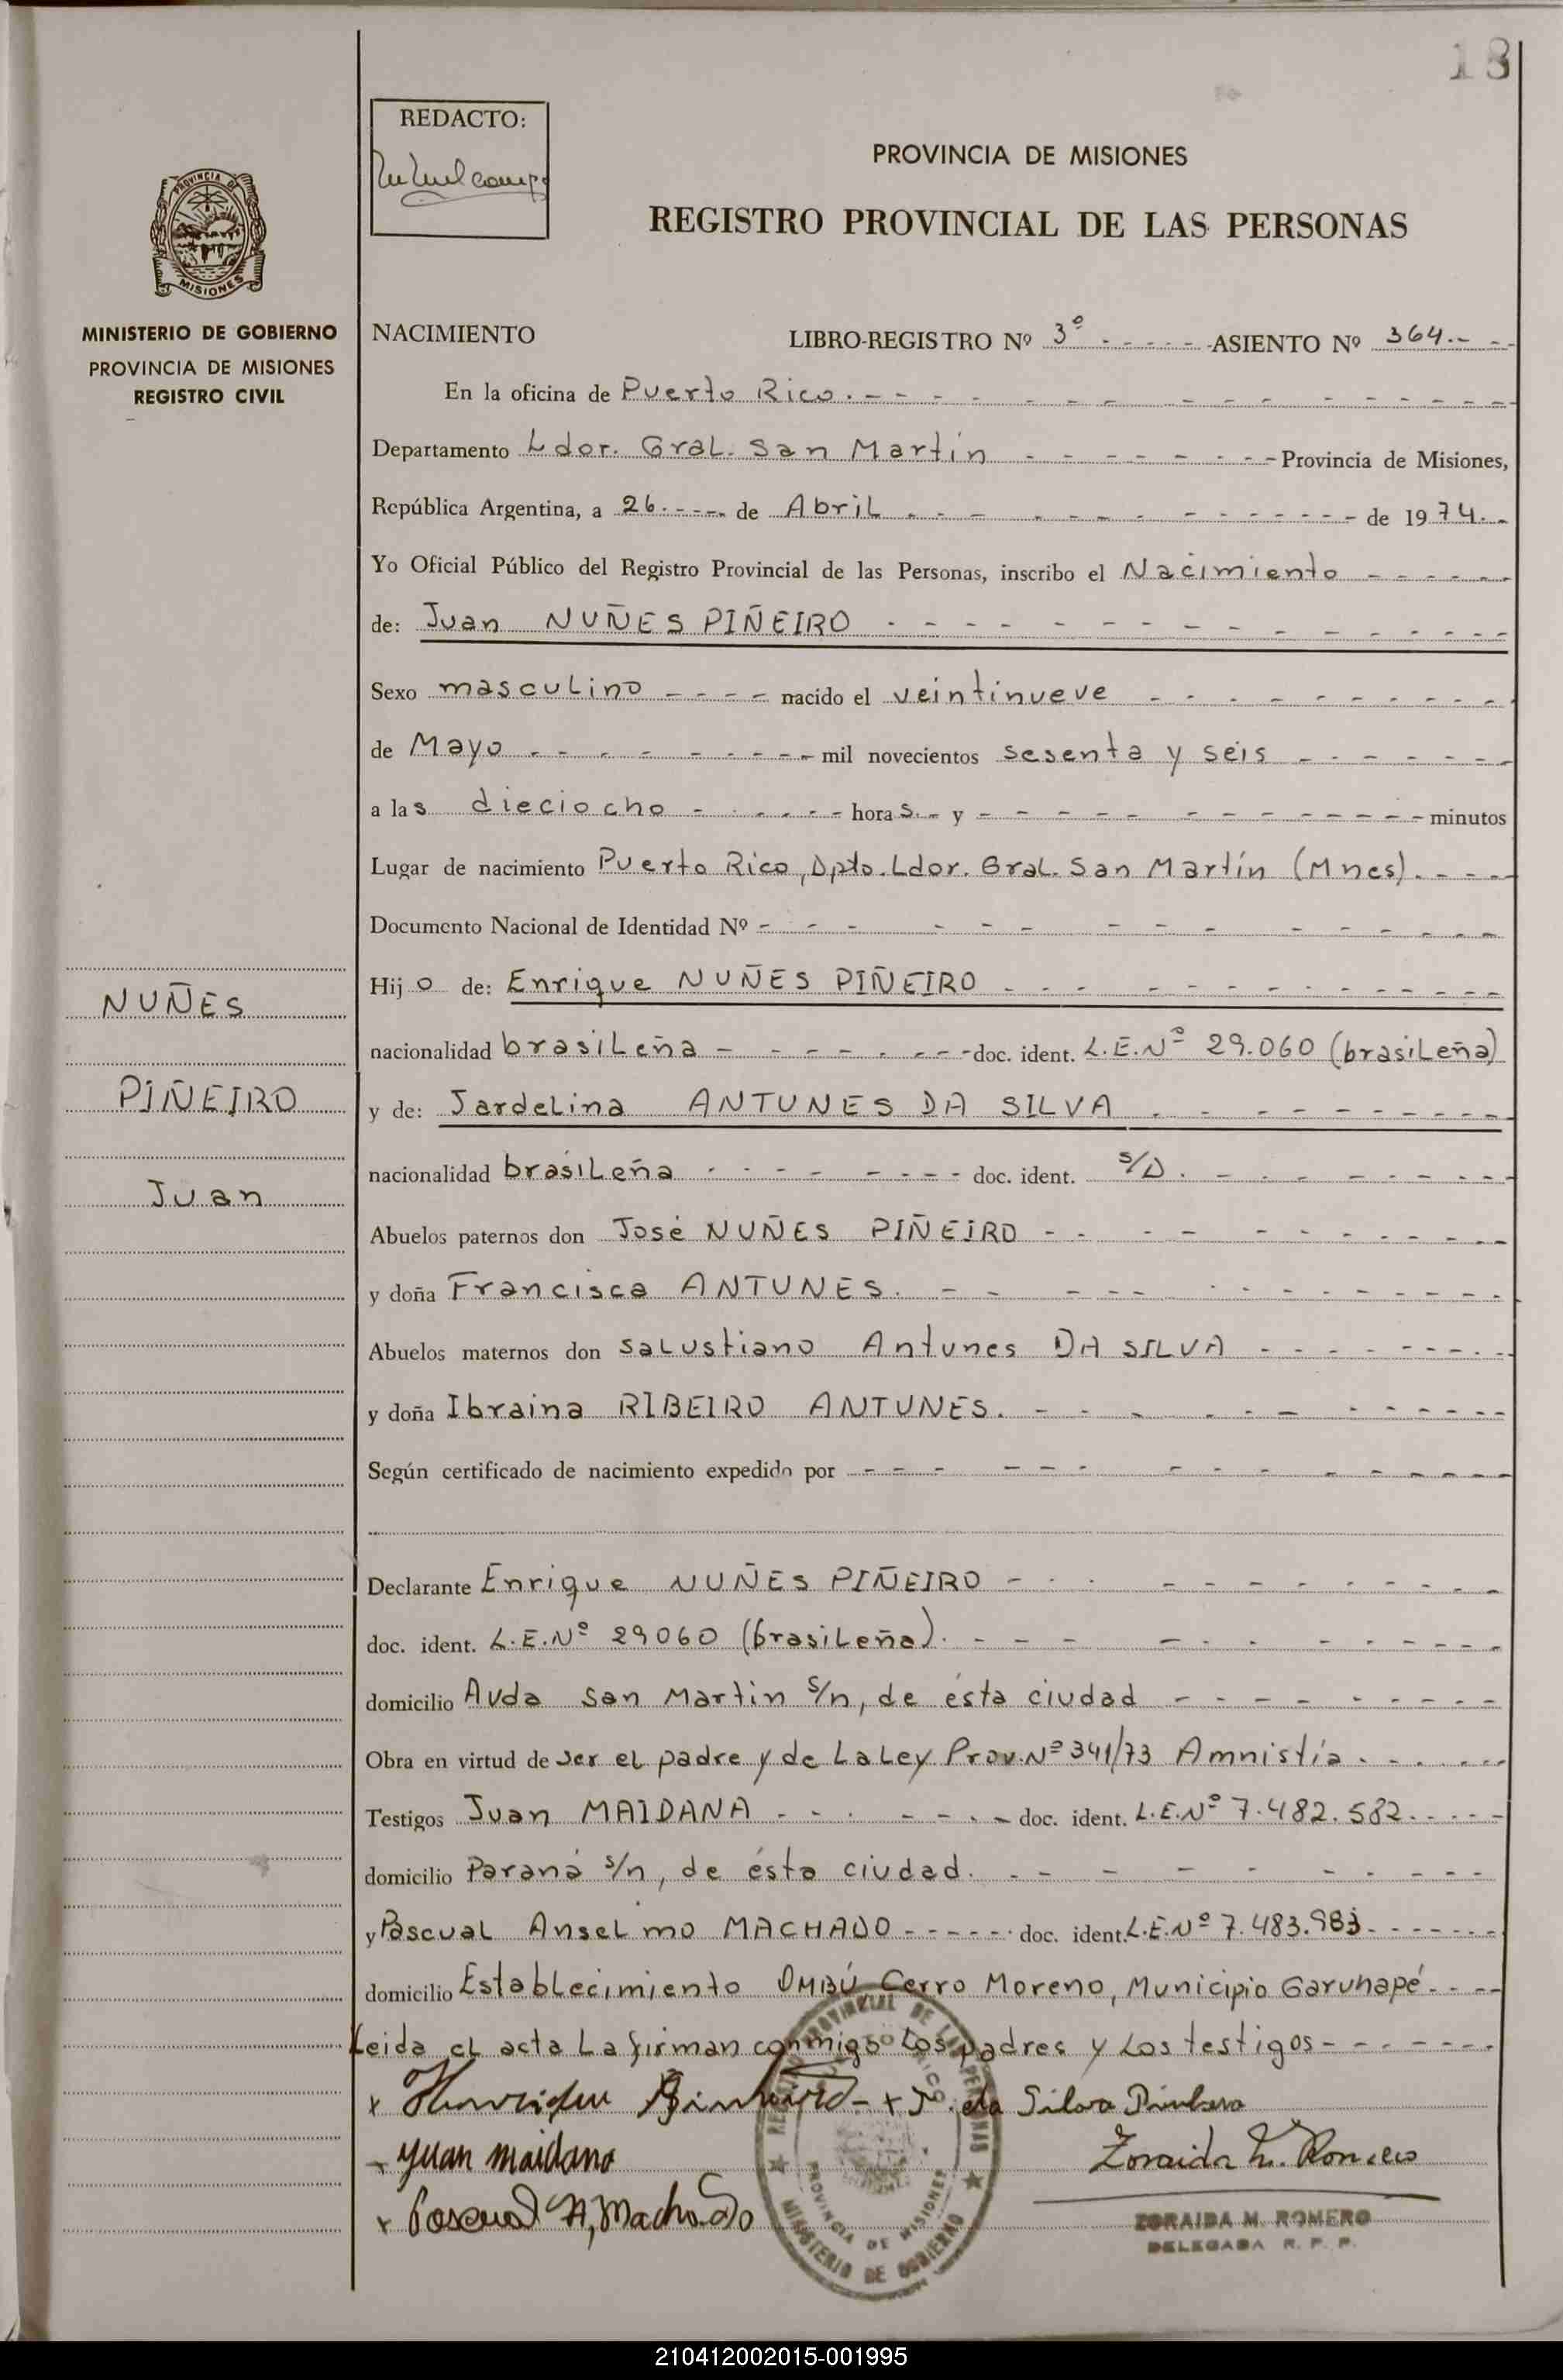 18
REDACTO:
PROVINCIA DE MISIONES
REGISTRO PROVINCIAL DE LAS PERSONAS
PROVINCIA DE
MISIONES
MINISTERIO DE GOBIERNO
PROVINCIA DE MISIONES
REGISTRO CIVIL
NACIMIENTO LIBRO-REGISTRO Nº 3º - - - - - - ASIENTO Nº 364.- - -
En la oficina de Puerto Rico. - - - - - - -
Departamento Ldor. Gral. San Martín - - - - - - Provincia de Misiones,
República Argentina, a 26. - - - - de Abril - - - - - - de 1974.-
Yo Oficial Público del Registro Provincial de las Personas, inscribo el Nacimiento - - - - - -
de: Juan NUÑES PIÑEIRO - - - - - -
Sexo masculino - - - - nacido el veintinueve - - - - - -
de Mayo - - - - - - mil novecientos sesenta y seis - - - - - -
a las dieciocho - - - - - - horas.- y - - - - - - minutos
Lugar de nacimiento Puerto Rico, Dpto. Ldor. Gral. San Martín (Mnes). - - - -
Documento Nacional de Identidad Nº - - - - - -
Hijo de: Enrique NUÑES PIÑEIRO - - - - - -
nacionalidad brasileña - - - - - - doc. ident. L.E.Nº 29.060 (brasileña)
y de: Jardelina ANTUNES DA SILVA - - - - - -
nacionalidad brasileña - - - - - - doc. ident. s/D. - - - - - -
Abuelos paternos don José NUÑES PIÑEIRO - - - - - -
y doña Francisca ANTUNES. - - - - - -
Abuelos maternos don Salustiano Antunes DA SILVA - - - - - -
y doña Ibraina RIBEIRO ANTUNES. - - - - - -
Según certificado de nacimiento expedido por - - - - - -
Declarante Enrique NUÑES PIÑEIRO - - - - - -
doc. ident. L.E.Nº 29060 (brasileña). - - - - - -
domicilio Avda San Martin s/n, de ésta ciudad - - - - - -
Obra en virtud de ser el padre y de la Ley Prov. Nº 341/73 Amnistía. - - - - -
Testigos Juan MAIDANA - - - - - - doc. ident. L.E.Nº 7.482.582. - - - -
domicilio Paraná s/n, de ésta ciudad. - - - - - -
y Pascual Anselmo MACHADO - - - - - - doc. ident. L.E.Nº 7.483.983. - - - - -
domicilio Establecimiento OMBÚ Cerro Moreno, Municipio Garuhapé. - - - -
Leida el acta la firman conmigo los padres y los testigos - - - - - -
x Henrique Pinheiro - x Jº. da Silva Pinheiro
- Juan maidana
Zoraida M. Romero
x Pascual A, Machado
ZORAIDA M. ROMERO
DELEGADA R. P. P.
PROVINCIA DE MISIONES
MINISTERIO DE GOBIERNO
NUÑES
PIÑEIRO
Juan
210412002015-001995